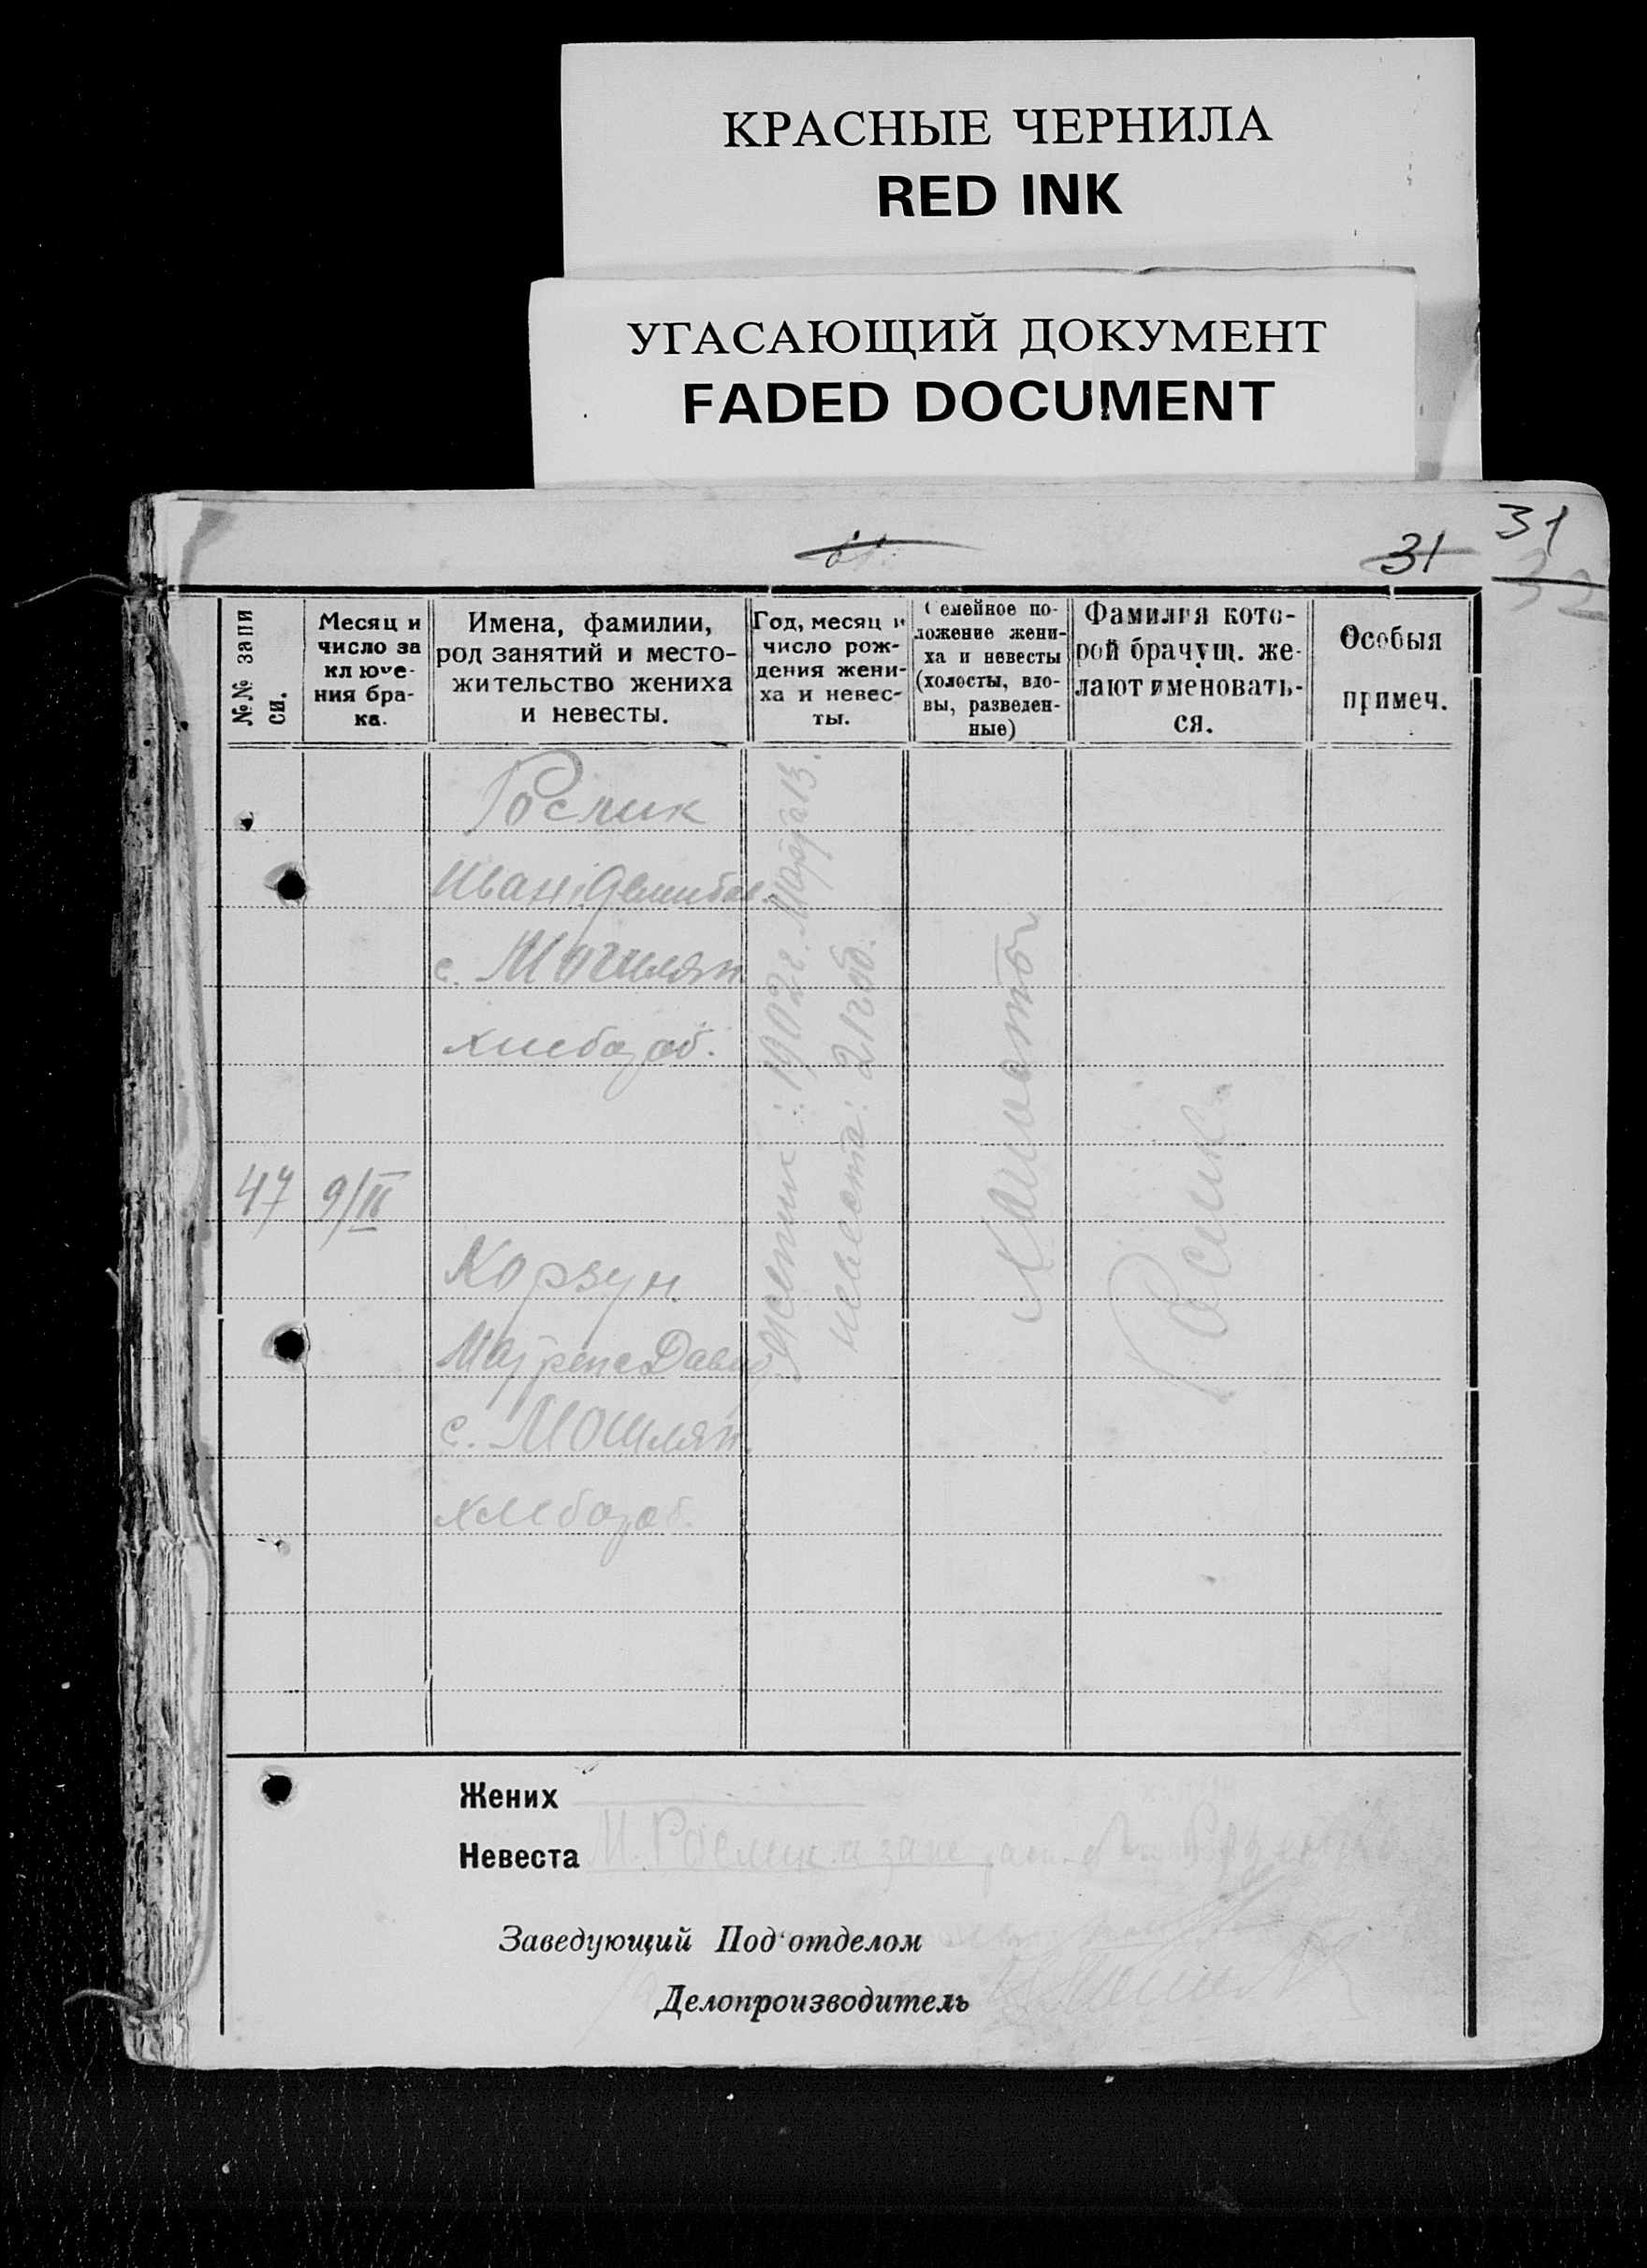 КРАСНЫЕ ЧЕРНИЛА
RED INK
УГАСАЮЩИЙ ДОКУМЕНТ
FADED DOCUMENT
31
31
32
№№ запи
си.
Месяц и
число за
ключе-
ния бра-
ка.
Имена, фамилии,
род занятий и место-
жительство жениха
и невесты.
Год, месяц и
число рож-
дения жени-
ха и невес-
ты.
Семейное по-
ложение жени-
ха и невесты
(холосты, вдо-
вы, разведен-
ные)
Фамилия кото-
рой брачущ. же-
лают именовать-
ся.
Особыя
примеч.
Рослик
Иван
с. Могилян.
хлебороб.
47 9/II
Корзун
с. Могилян.
хлебороб.
жених: 1902 г. Марта 13.
невеста: 21 год.
Рослик
Жених
Невеста
Заведующий Под'отделом
Делопроизводитель